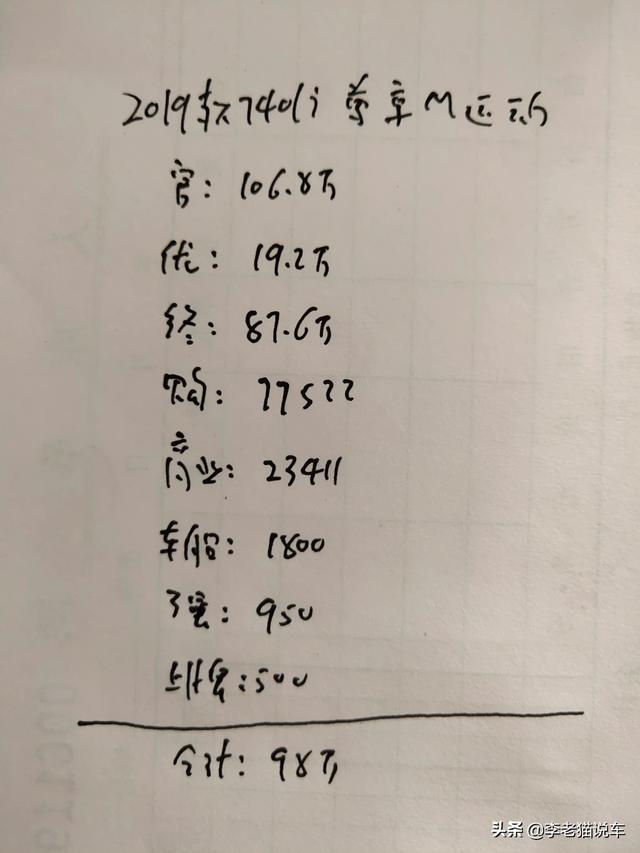 2019款740li 尊享M运动
官: 106.8万
优: 19.2万
终: 87.6万
购: 77522
商业: 23411
车船: 1800
强: 950
上牌费: 500
合计: 98万
001119
头条 @李老猫说车